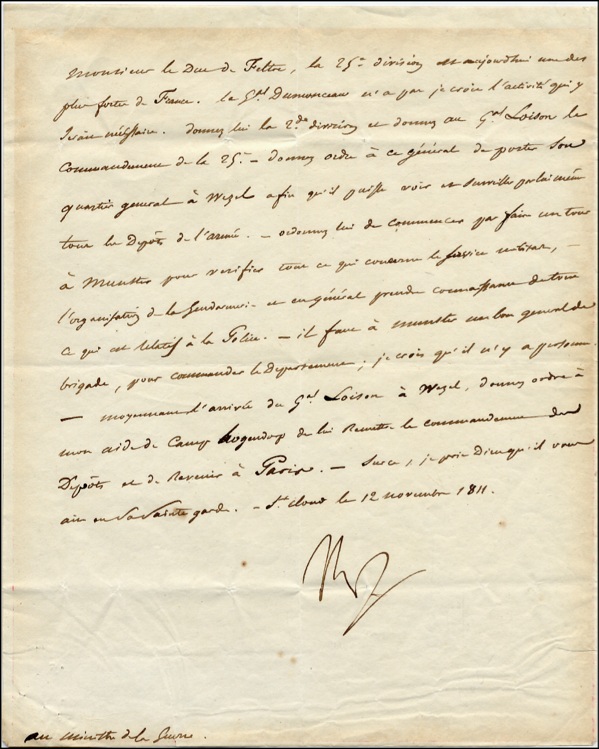 Monsieur le Duc de Feltre, la 25e division est aujourd'hui une des
plus fortes de France. le Gal Dumonceau n'a pas je crois l'activité qui y
serait nécessaire. donnez lui la 2de division et donnez au Gal Loison le
Commandement de la 25e. - donnez ordre à ce général de porter son
quartier general à Wezel afin qu'il puisse voir et surveiller par lui même
tous les Dépôts de l'armée. - ordonnez lui de commencer par faire un tour
à Munster pour verifier tout ce qui concerne le service militaire, -
l'organisation de la Gendarmerie et en général prendre connaissance de tout
ce qui est relatif à la Police. - il faut à Munster un bon general de
brigade, pour commander le Departement; je crois qu'il n'y a personne.
- moyennant l'arrivée du Gal Loison à Wezel, donnez ordre à
mon aide de Camp hogendorp de lui Remettre le commandement des
Dépôts et de Revenir à Paris. - Sur ce, je prie Dieu qu'il vous
ait en Sa Sainte garde. - St Cloud le 12 novembre 1811.
Np
au ministre de la Guerre.